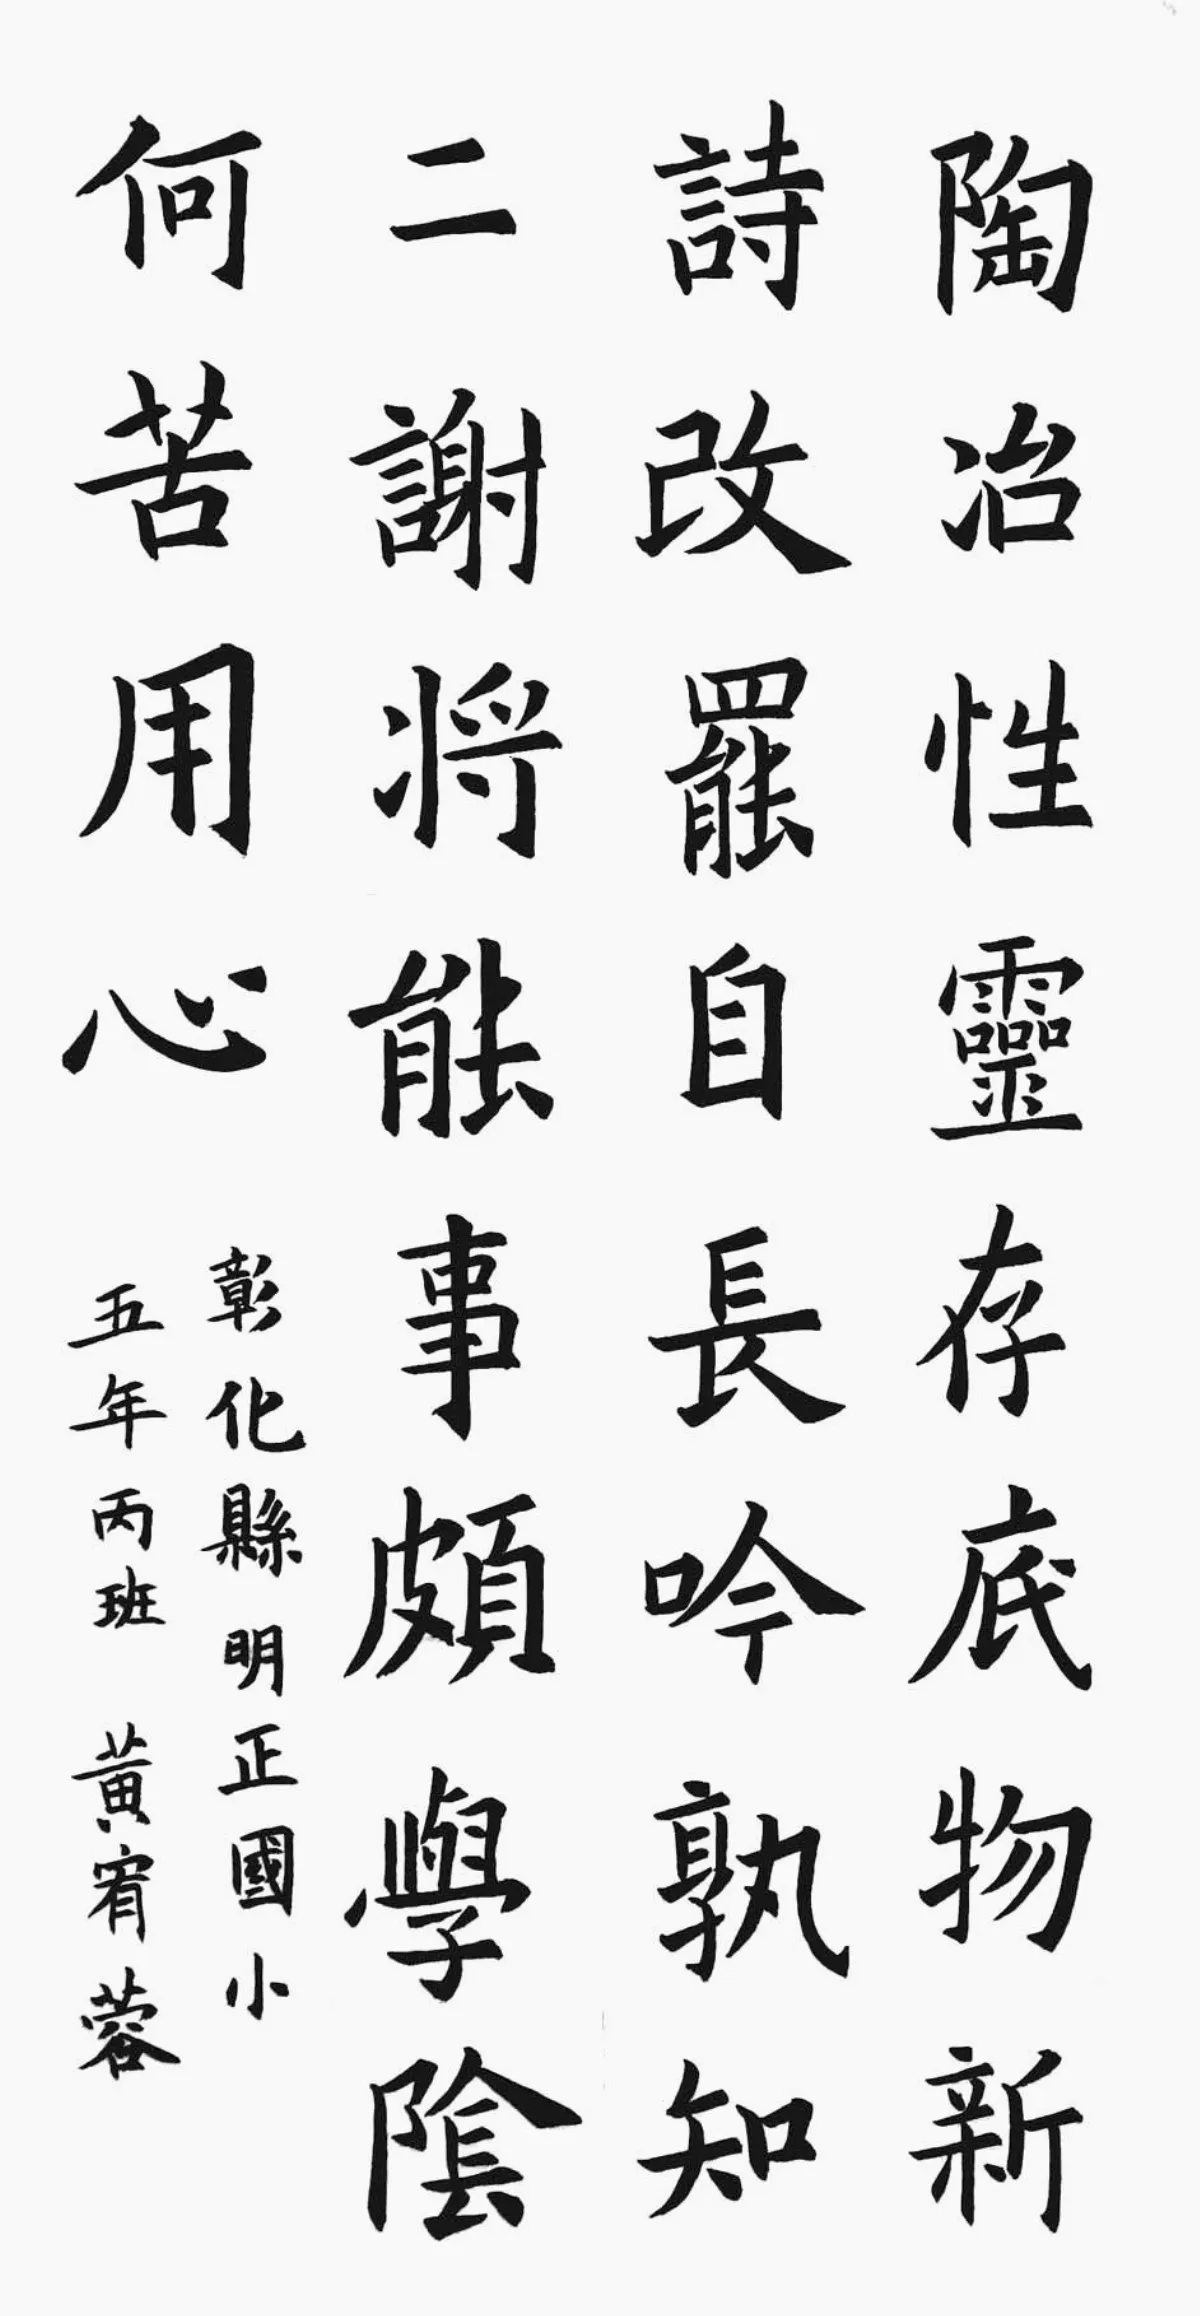 陶冶性靈存底物新
詩改罷自長吟孰知
二謝將能事頗學陰
何苦用心
彰化縣明正國小
五年丙班 黃宥蓉